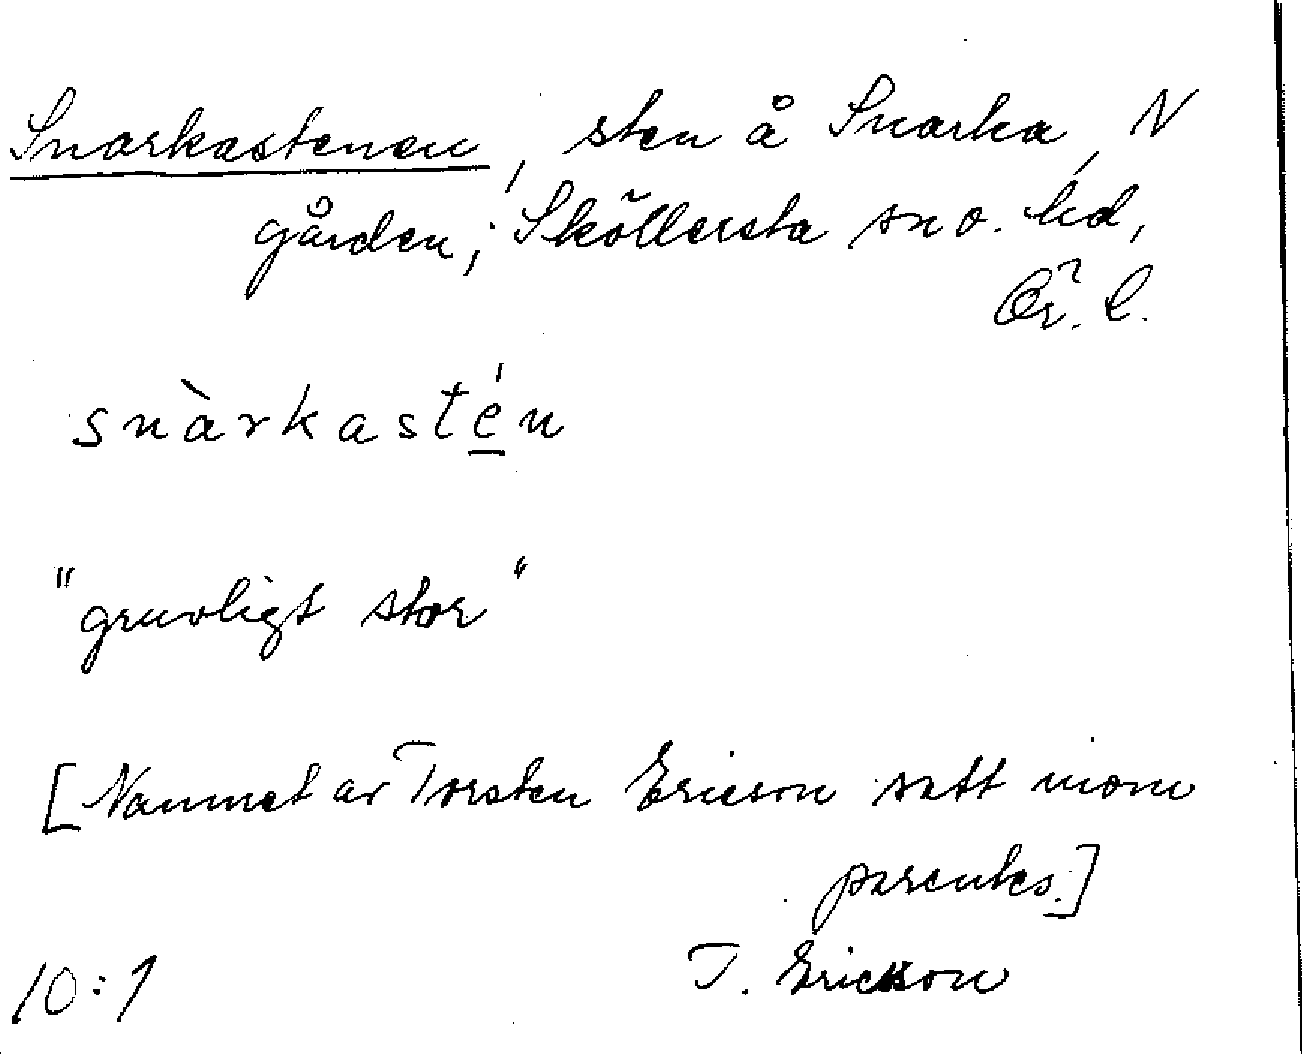 Snarkastenen, sten å Snarka, N
gården; Sköllersta sn o. hd,
Ör. l.
snàrkastén
"gruvligt stor"
[Namnet av Torsten Ericson satt inom
parentes.]
10:1 T. Ericsson